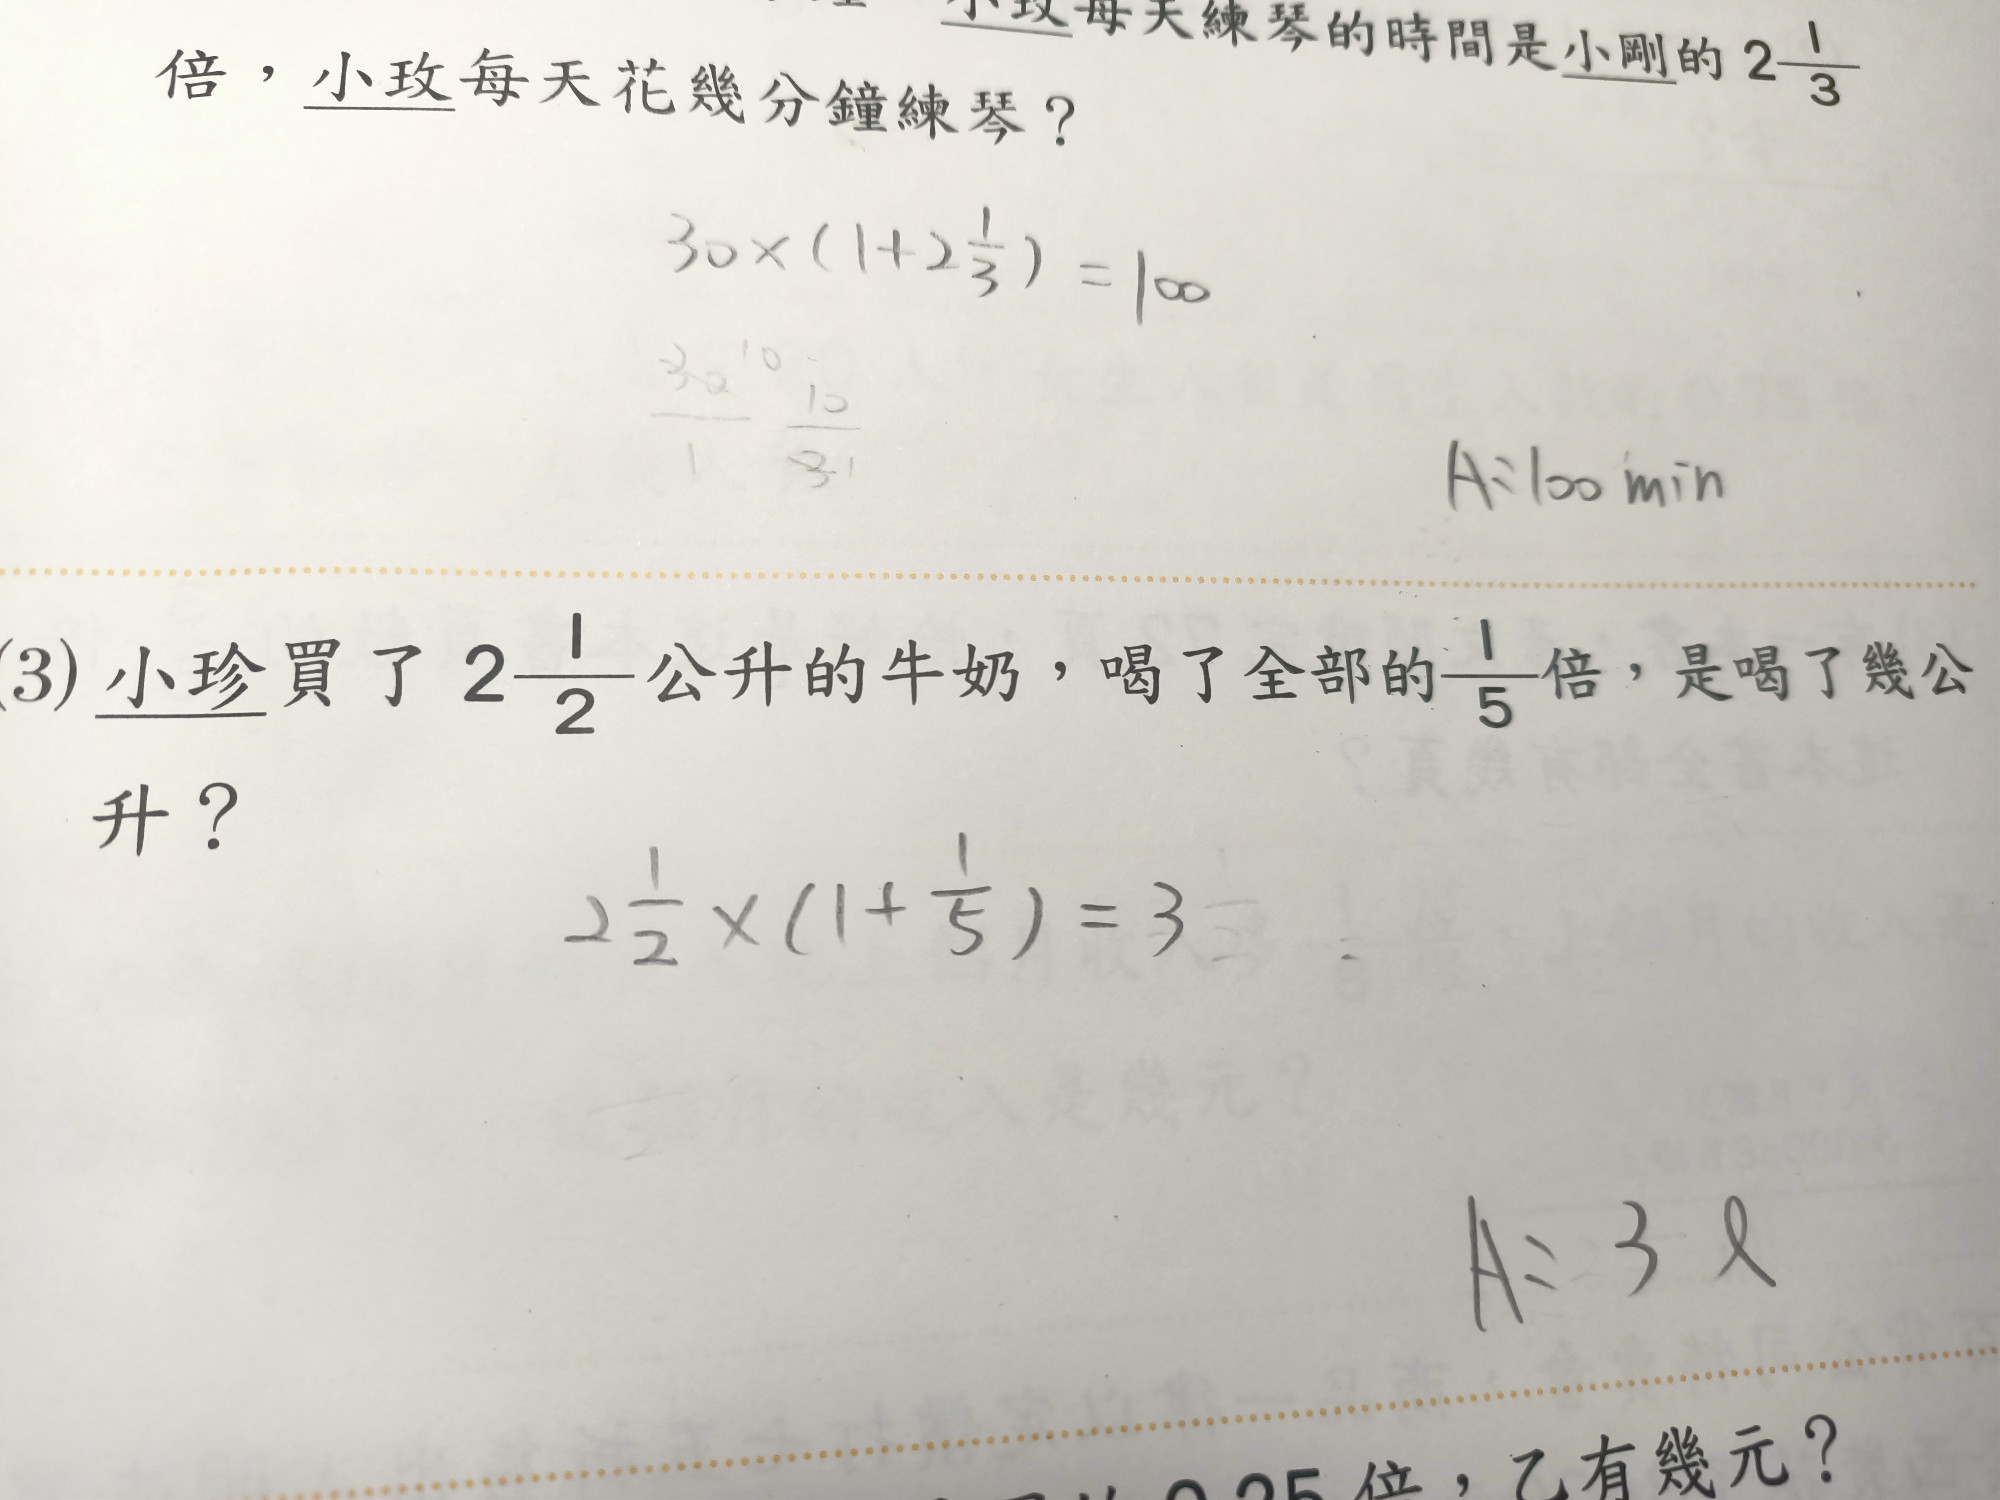 小玫每天練琴的時間是小剛的 2 1/3
倍，小玫每天花幾分鐘練琴？
30×(1+2 1/3)=100
30 10 10
1 3 1
A:100 min
(3) 小珍買了 2 1/2 公升的牛奶，喝了全部的 1/5 倍，是喝了幾公
升？
2 1/2 ×(1+ 1/5)=3
A: 3 ℓ
0.25 倍，乙有幾元？